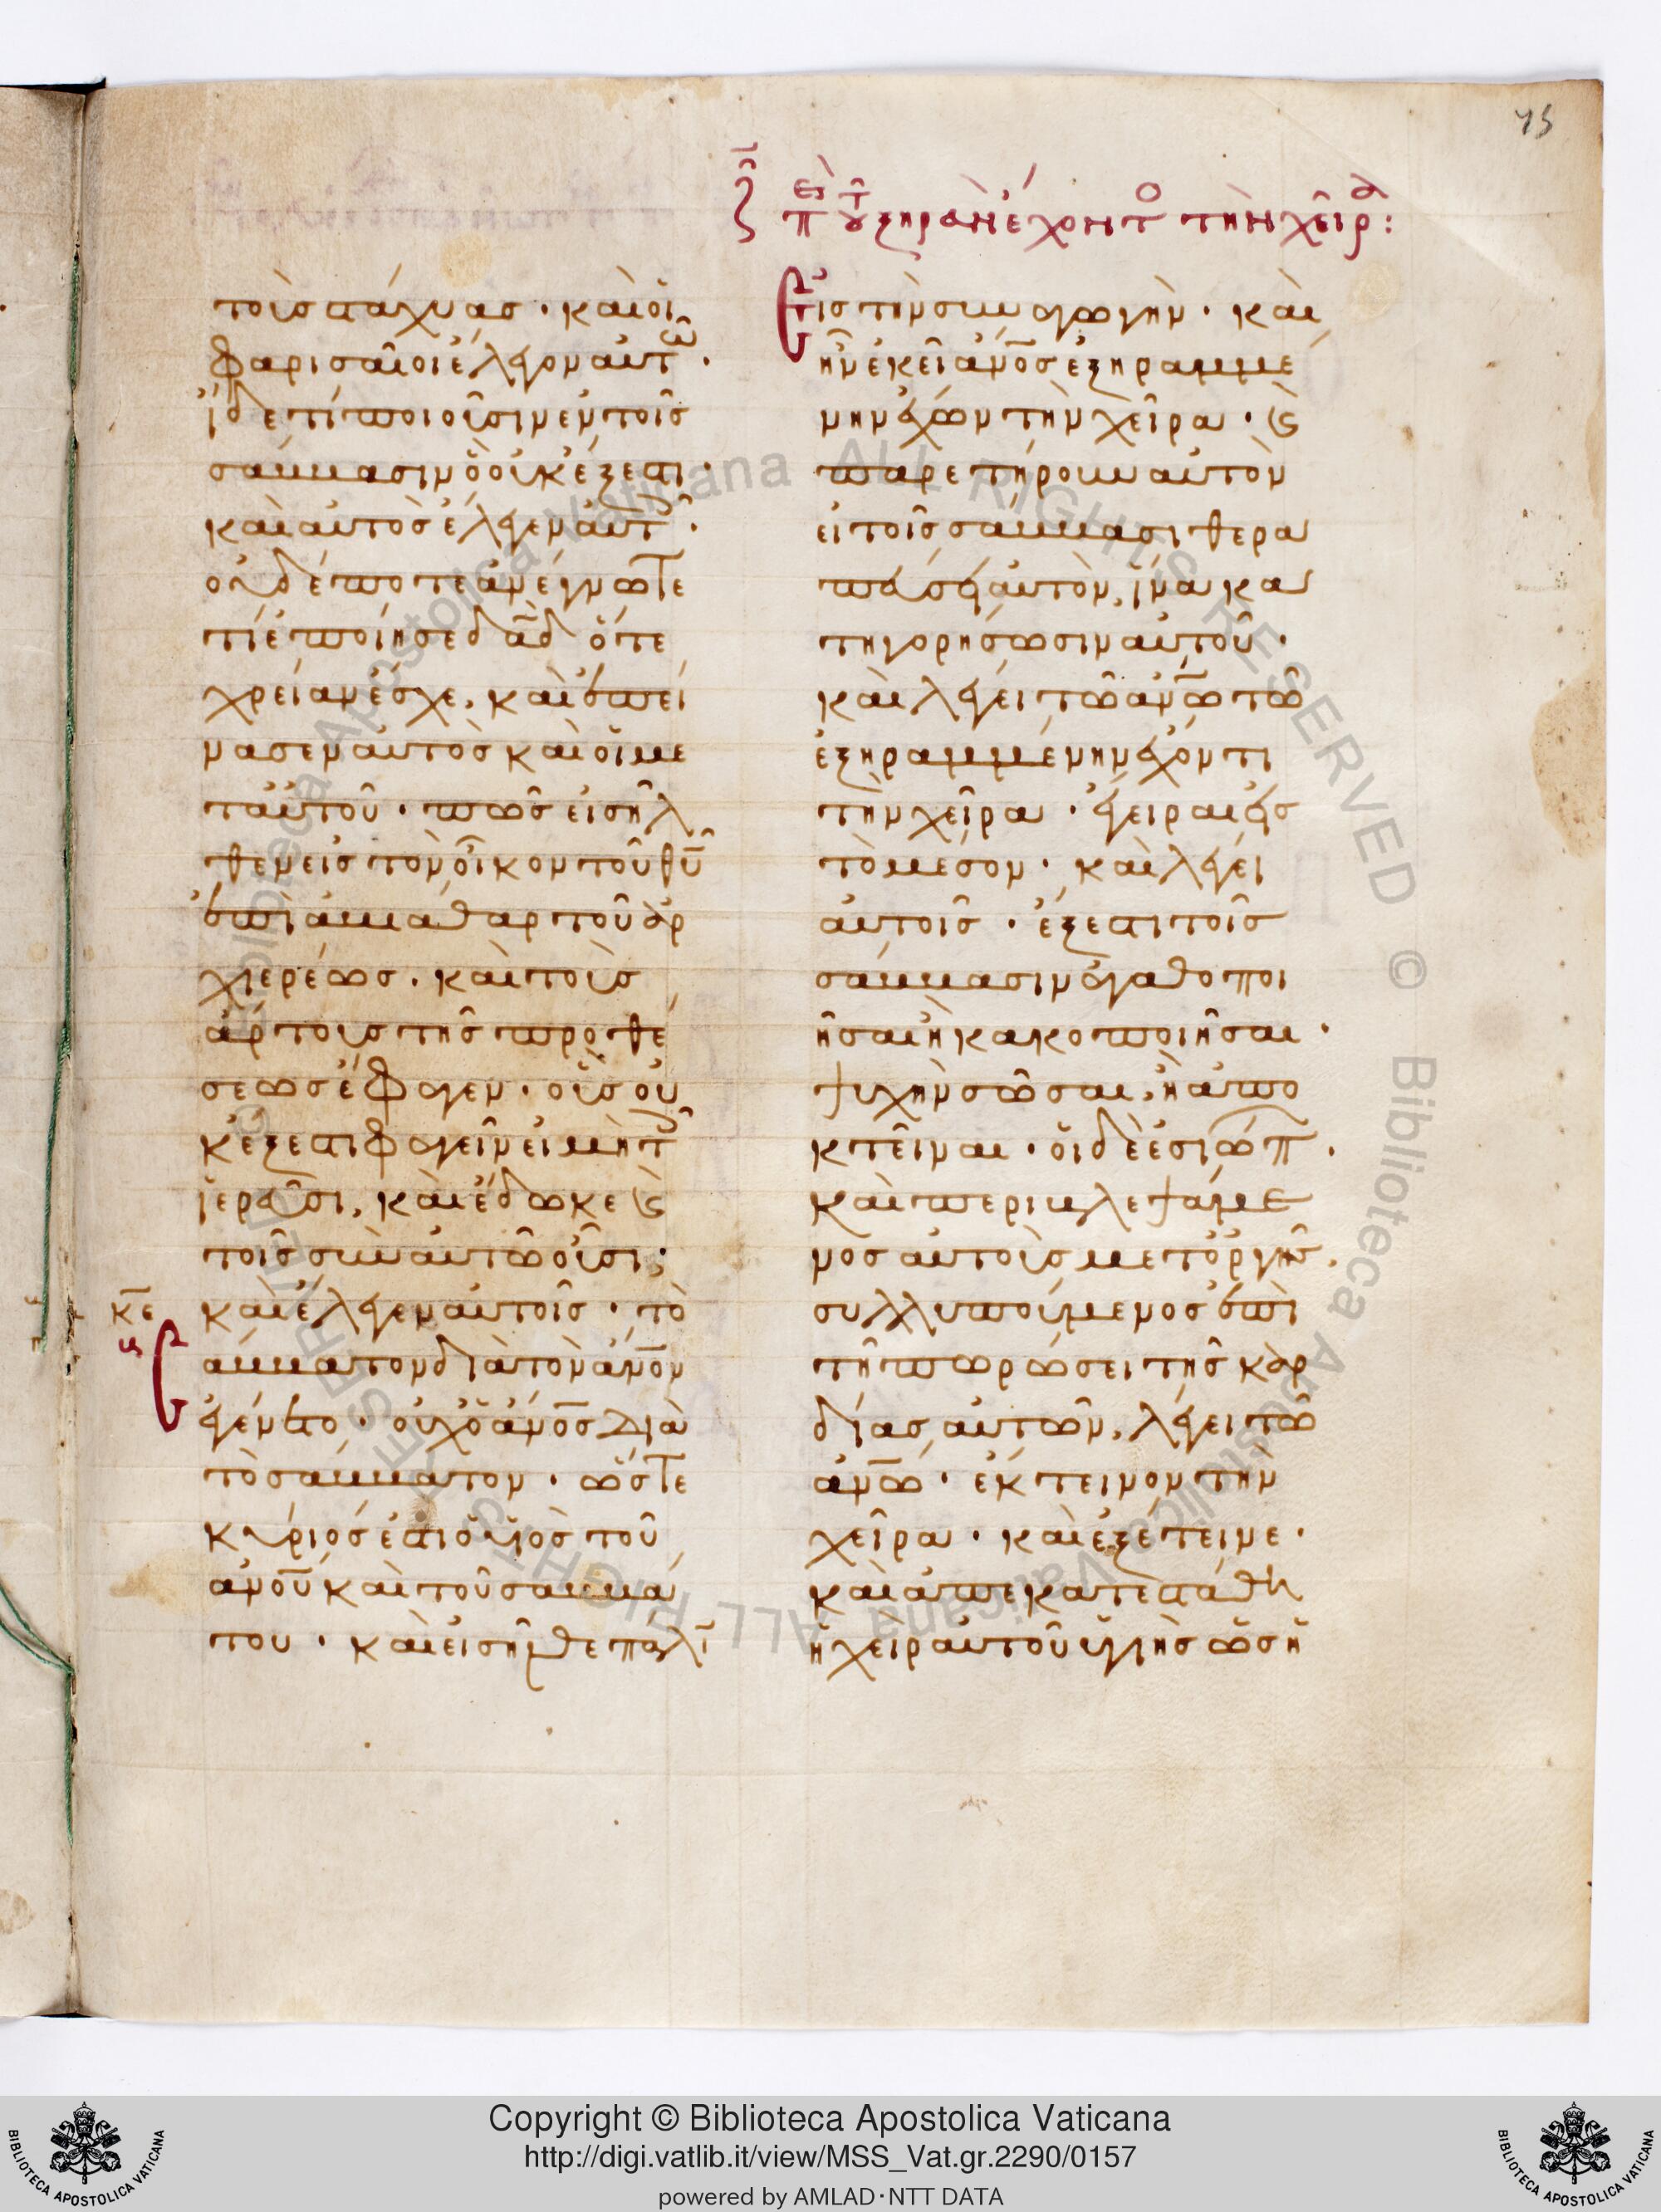 75
ϛ̄ πε̣ τ̑ ξηρὰν ἔχοντο τὴν χεῖρα:
τοὺς στάχυας · καὶ οἱ
φαρισαῖοι ἔλεγον αὐτῶ ·
ἴδε τί ποιοῦσιν ἐν τοῖς
σάββασιν ὃ οὐκ ἔξεστι ·
καὶ αὐτὸς ἔλεγεν αὐτοῖς ·
οὐδέποτε ἀνέγνωτε
τί ἐποίησε δᾱδ ὅτε
χρείαν ἔσχε, καὶ ἐπεί
νασεν αὐτὸς καὶ οἱ με
τ' αὐτοῦ · πῶς εἰσῆλ
θεν εἰς τὸν οἶκον τοῦ θῡ
ἐπὶ ἀβιάθαρ τοῦ ἀρ
χιερέως · καὶ τοὺς
ἄρτους τῆς προθέ
σεως ἔφαγεν · οὓς οὐ
κ ἔξεστι φαγεῖν εἰ μὴ τοῖς
ἱερεῦσι, καὶ ἔδωκε ϗ
τοῖς σὺν αὐτῶ οὖσι;
κε̄ καὶ ἔλεγεν αὐτοῖς · τὸ
σάββατον διὰ τὸν ἄνο̄ν
ἐγένετο · οὐχ ὁ ἄνο̄ς διὰ
τὸ σάββατον · ὥστε
κύριός ἐστι ὁ υἱὸς τοῦ
ἀνο̄υ καὶ τοῦ σαββά
του · καὶ εἰσῆλθε πάλῑ
Εἰς τὴν συναγωγήν · καὶ
ἦν ἐκεῖ ἄνο̄ς ἐξηραμμέ
νην ἔχων τὴν χεῖρα · ϗ
παρετήρουν αὐτὸν
εἰ τοῖς σάββασι θερα
πεύσει αὐτὸν, ἵνα κα
τηγορήσωσιν αὐτοῦ ·
καὶ λέγει τῶ ἀνω̄ τῶ
ἐξηραμμένην ἔχοντι
τὴν χεῖρα · ἔγειραι εἰς
τὸ μέσον · καὶ λέγει
αὐτοῖς · ἔξεστι τοῖς
σάββασιν ἀγαθοποι
ῆσαι ἢ κακοποιῆσαι ·
ψυχὴν σῶσαι, ἢ ἀπο
κτεῖναι · οἱ δὲ ἐσιώπ ·
καὶ περιβλεψάμε
νος αὐτοὺς μετ' ὀργῆς,
συλλυπούμενος ἐπὶ
τῆ πωρώσει τῆς καρ
δίας αὐτῶν, λέγει τῶ
ἀνω̄ · ἔκτεινον τὴν
χεῖρα · καὶ ἐξέτεινε ·
καὶ ἀπεκατεστάθη
ἡ χεὶρ αὐτοῦ ὑγιὴς ὡς ἡ
Copyright © Biblioteca Apostolica Vaticana
http://digi.vatlib.it/view/MSS_Vat.gr.2290/0157
powered by AMLAD·NTT DATA
BIBLIOTECA APOSTOLICA VATICANA
BIBLIOTECA APOSTOLICA VATICANA